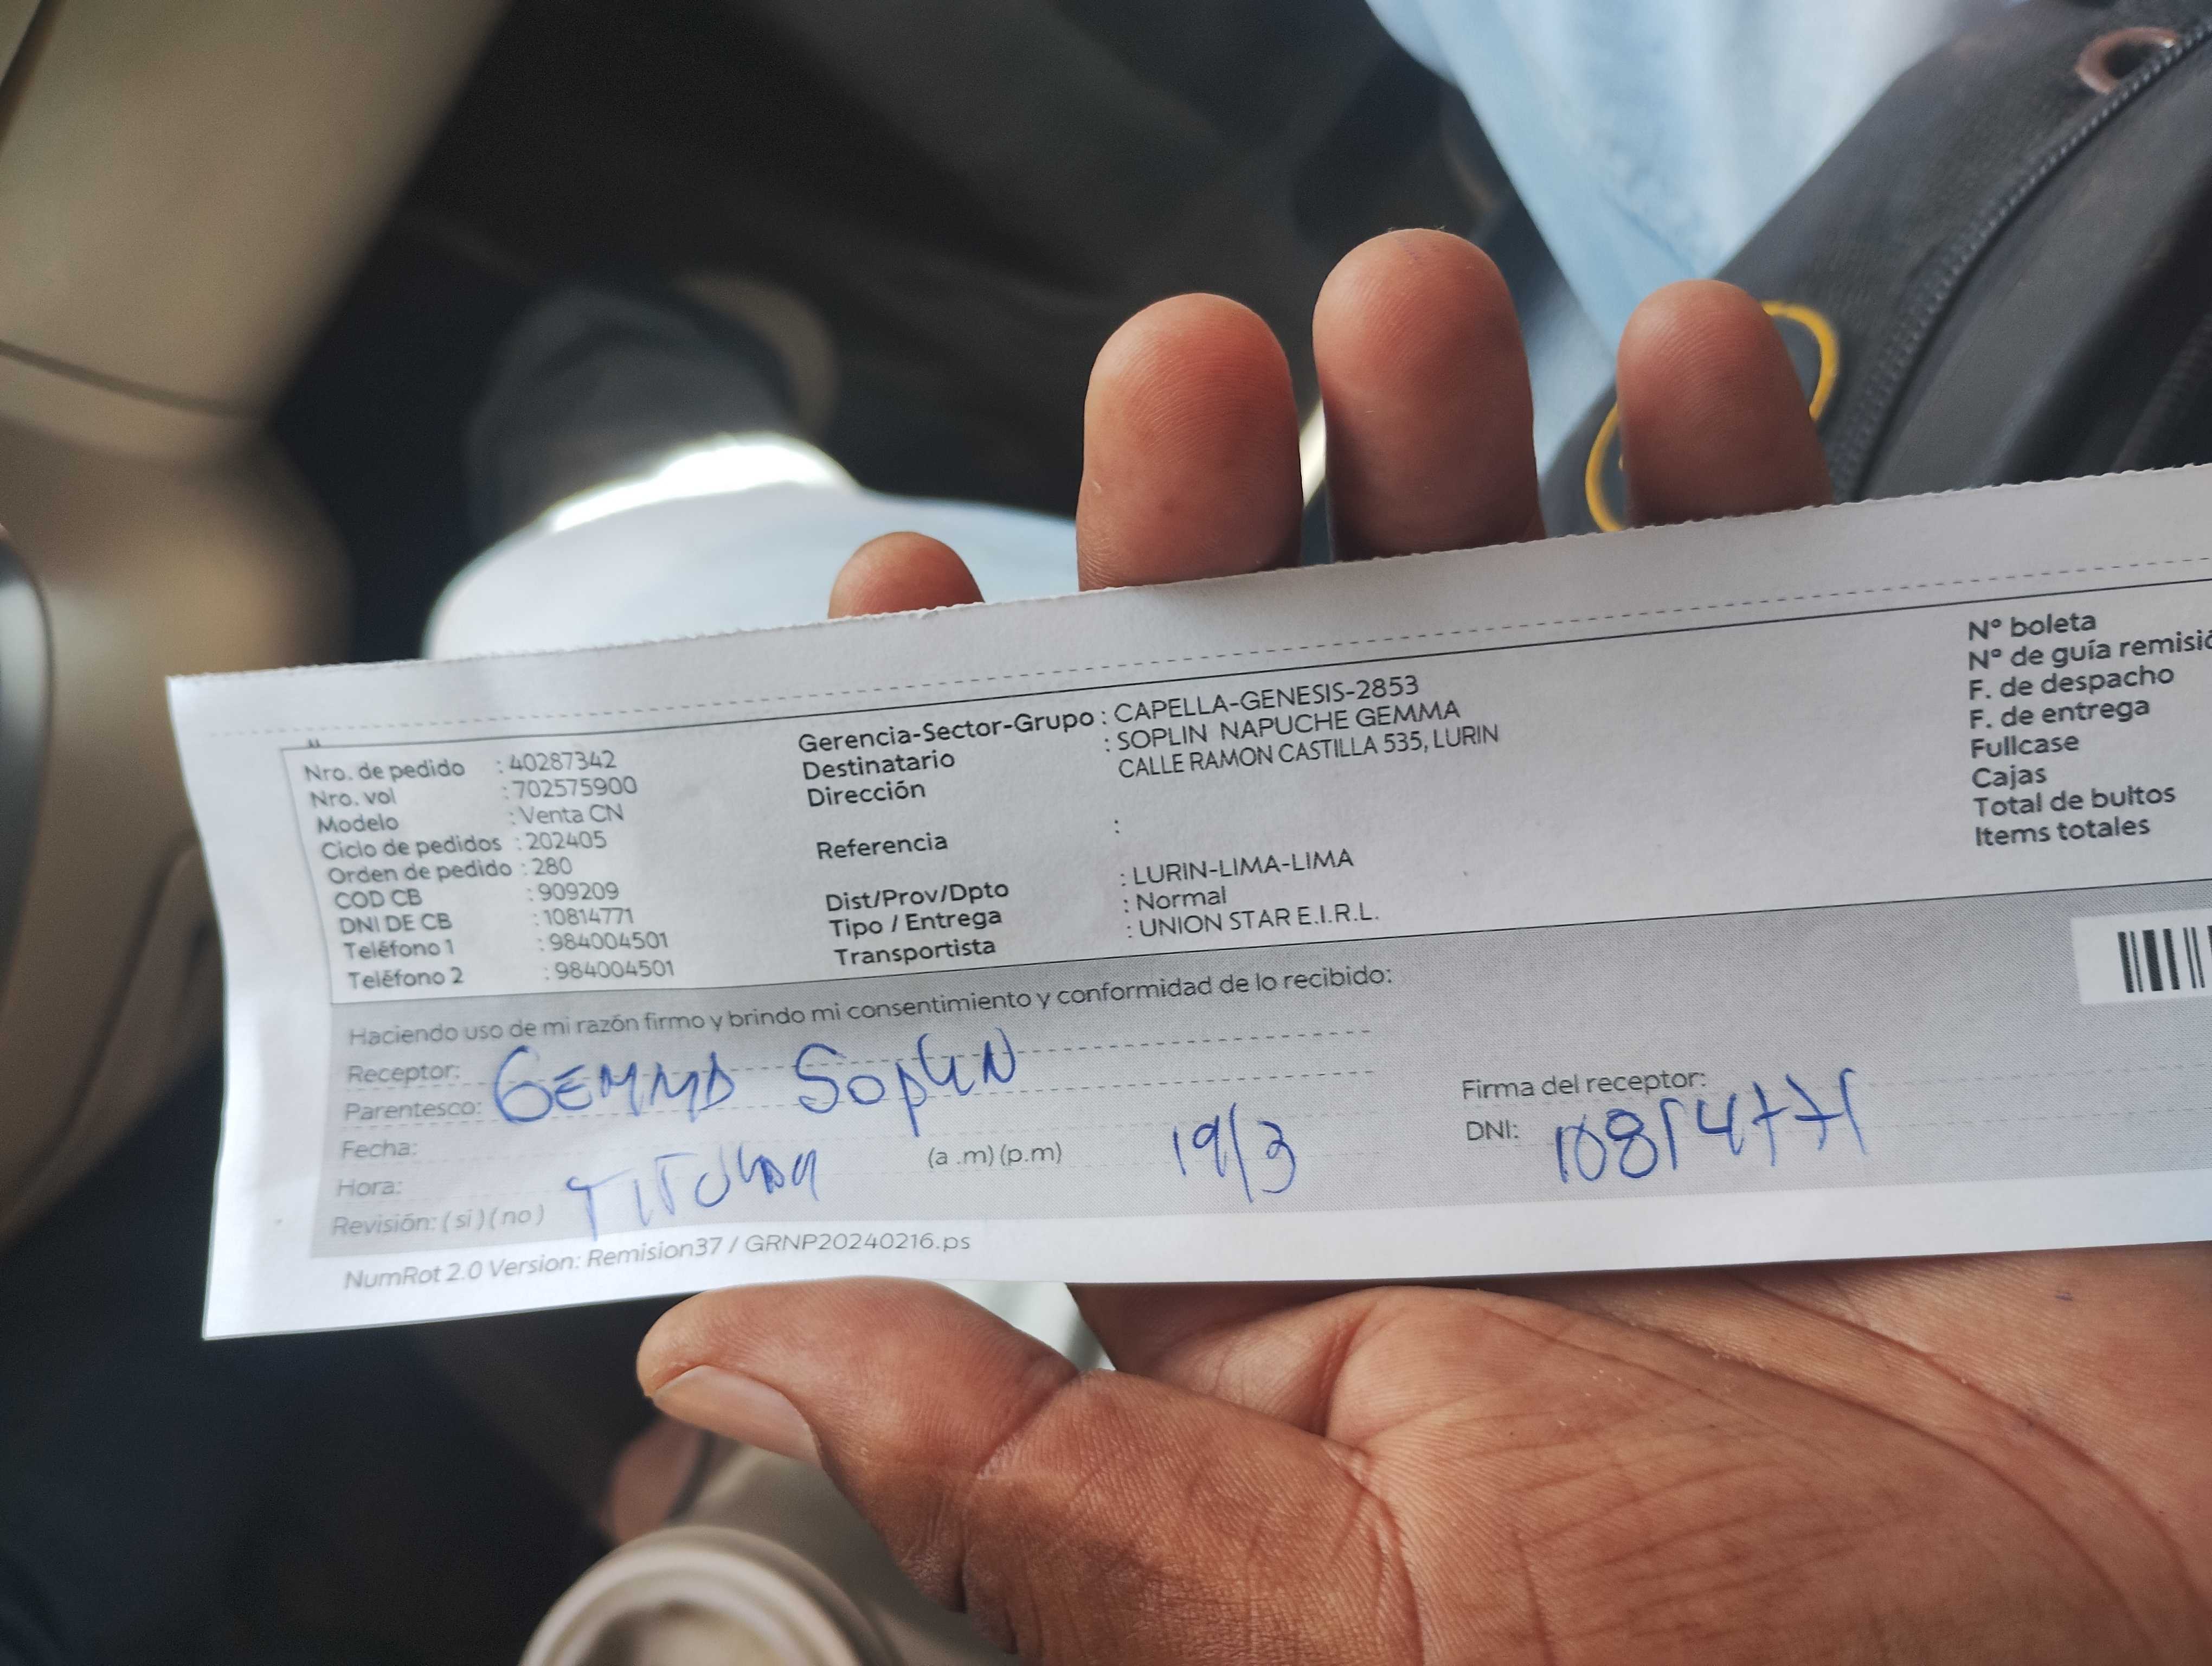 Nro. de pedido : 40287342
Nro. vol : 702575900
Modelo : Venta CN
Ciclo de pedidos : 202405
Orden de pedido : 280
COD CB : 909209
DNI DE CB : 10814771
Teléfono 1 : 984004501
Teléfono 2 : 984004501
Gerencia-Sector-Grupo : CAPELLA-GENESIS-2853
Destinatario : SOPLIN NAPUCHE GEMMA
Dirección CALLE RAMON CASTILLA 535, LURIN
Referencia :
Dist/Prov/Dpto : LURIN-LIMA-LIMA
Tipo / Entrega : Normal
Transportista : UNION STAR E.I.R.L.
N° boleta
N° de guía remisió
F. de despacho
F. de entrega
Fullcase
Cajas
Total de bultos
Items totales
Haciendo uso de mi razón firmo y brindo mi consentimiento y conformidad de lo recibido:
Receptor: GEMMA SOPLIN
Parentesco:
Fecha:
Hora: TITULAR (a .m) (p.m) 19/3
Revisión: ( si ) ( no )
Firma del receptor:
DNI: 10814771
NumRot 2.0 Version: Remision37 / GRNP20240216.ps